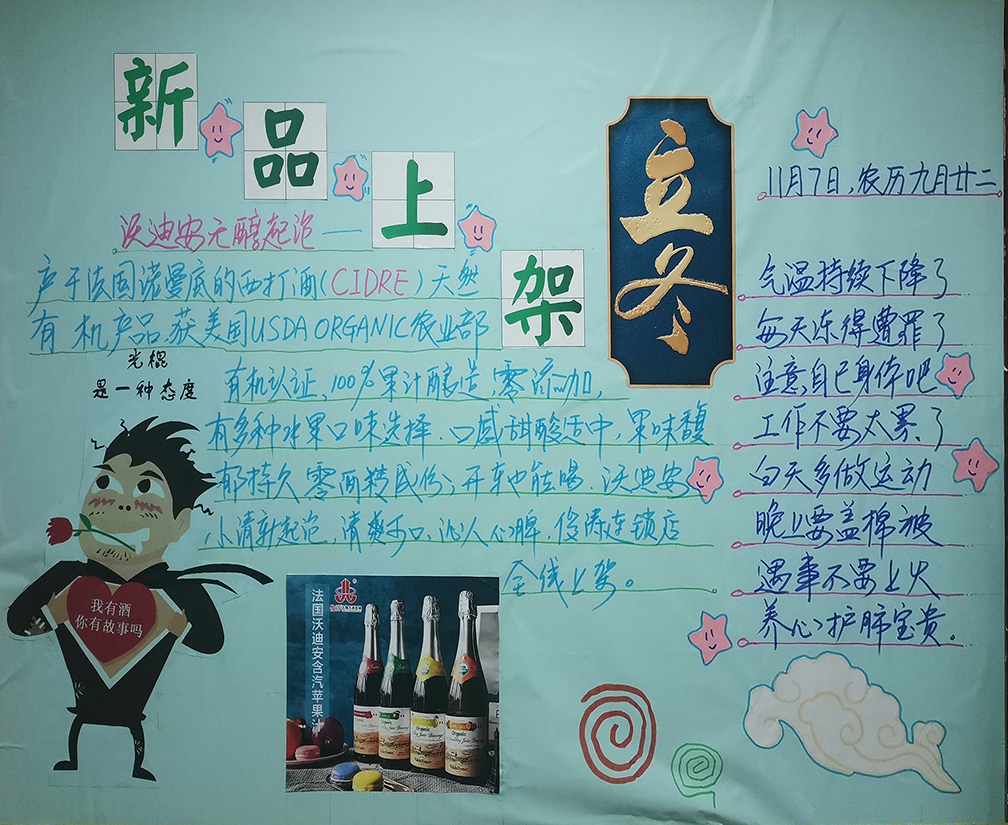 新品上架
沃迪安无醇起泡——
产于法国诺曼底的西打酒(CIDRE)天然
有机产品获美国USDA ORGANIC农业部
有机认证、100%果汁酿造,零添加,
有多种水果口味选择.口感甜酸适中,果味馥
郁持久零酒精成份,开车也能喝.沃迪安
小清新起泡,清爽可口,沁人心脾,俊涛连锁店
全线上架。
光棍
是一种态度
我有酒
你有故事吗
法国沃迪安含汽苹果汁
Organic
Organic
立冬
11月7日,农历九月廿二
气温持续下降了
每天冻得遭罪了
注意自己身体吧
工作不要太累了
白天多做运动
晚上要盖棉被
遇事不要上火
养心护肺宝贵。